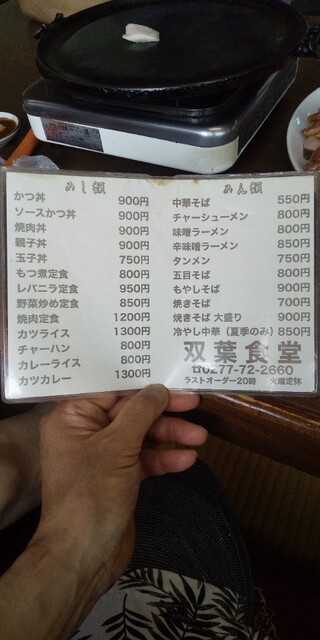 めし類
かつ丼 900円
ソースかつ丼 900円
焼肉丼 900円
親子丼 900円
玉子丼 750円
もつ煮定食 800円
レバニラ定食 950円
野菜炒め定食 850円
焼肉定食 1200円
カツライス 1300円
チャーハン 800円
カレーライス 800円
カツカレー 1300円
めん類
中華そば 550円
チャーシューメン 800円
味噌ラーメン 800円
辛味噌ラーメン 850円
タンメン 750円
五目そば 800円
もやしそば 900円
焼きそば 700円
焼きそば 大盛り 900円
冷やし中華（夏季のみ）850円
双葉食堂
☎0277-72-2660
ラストオーダー20時 火曜定休